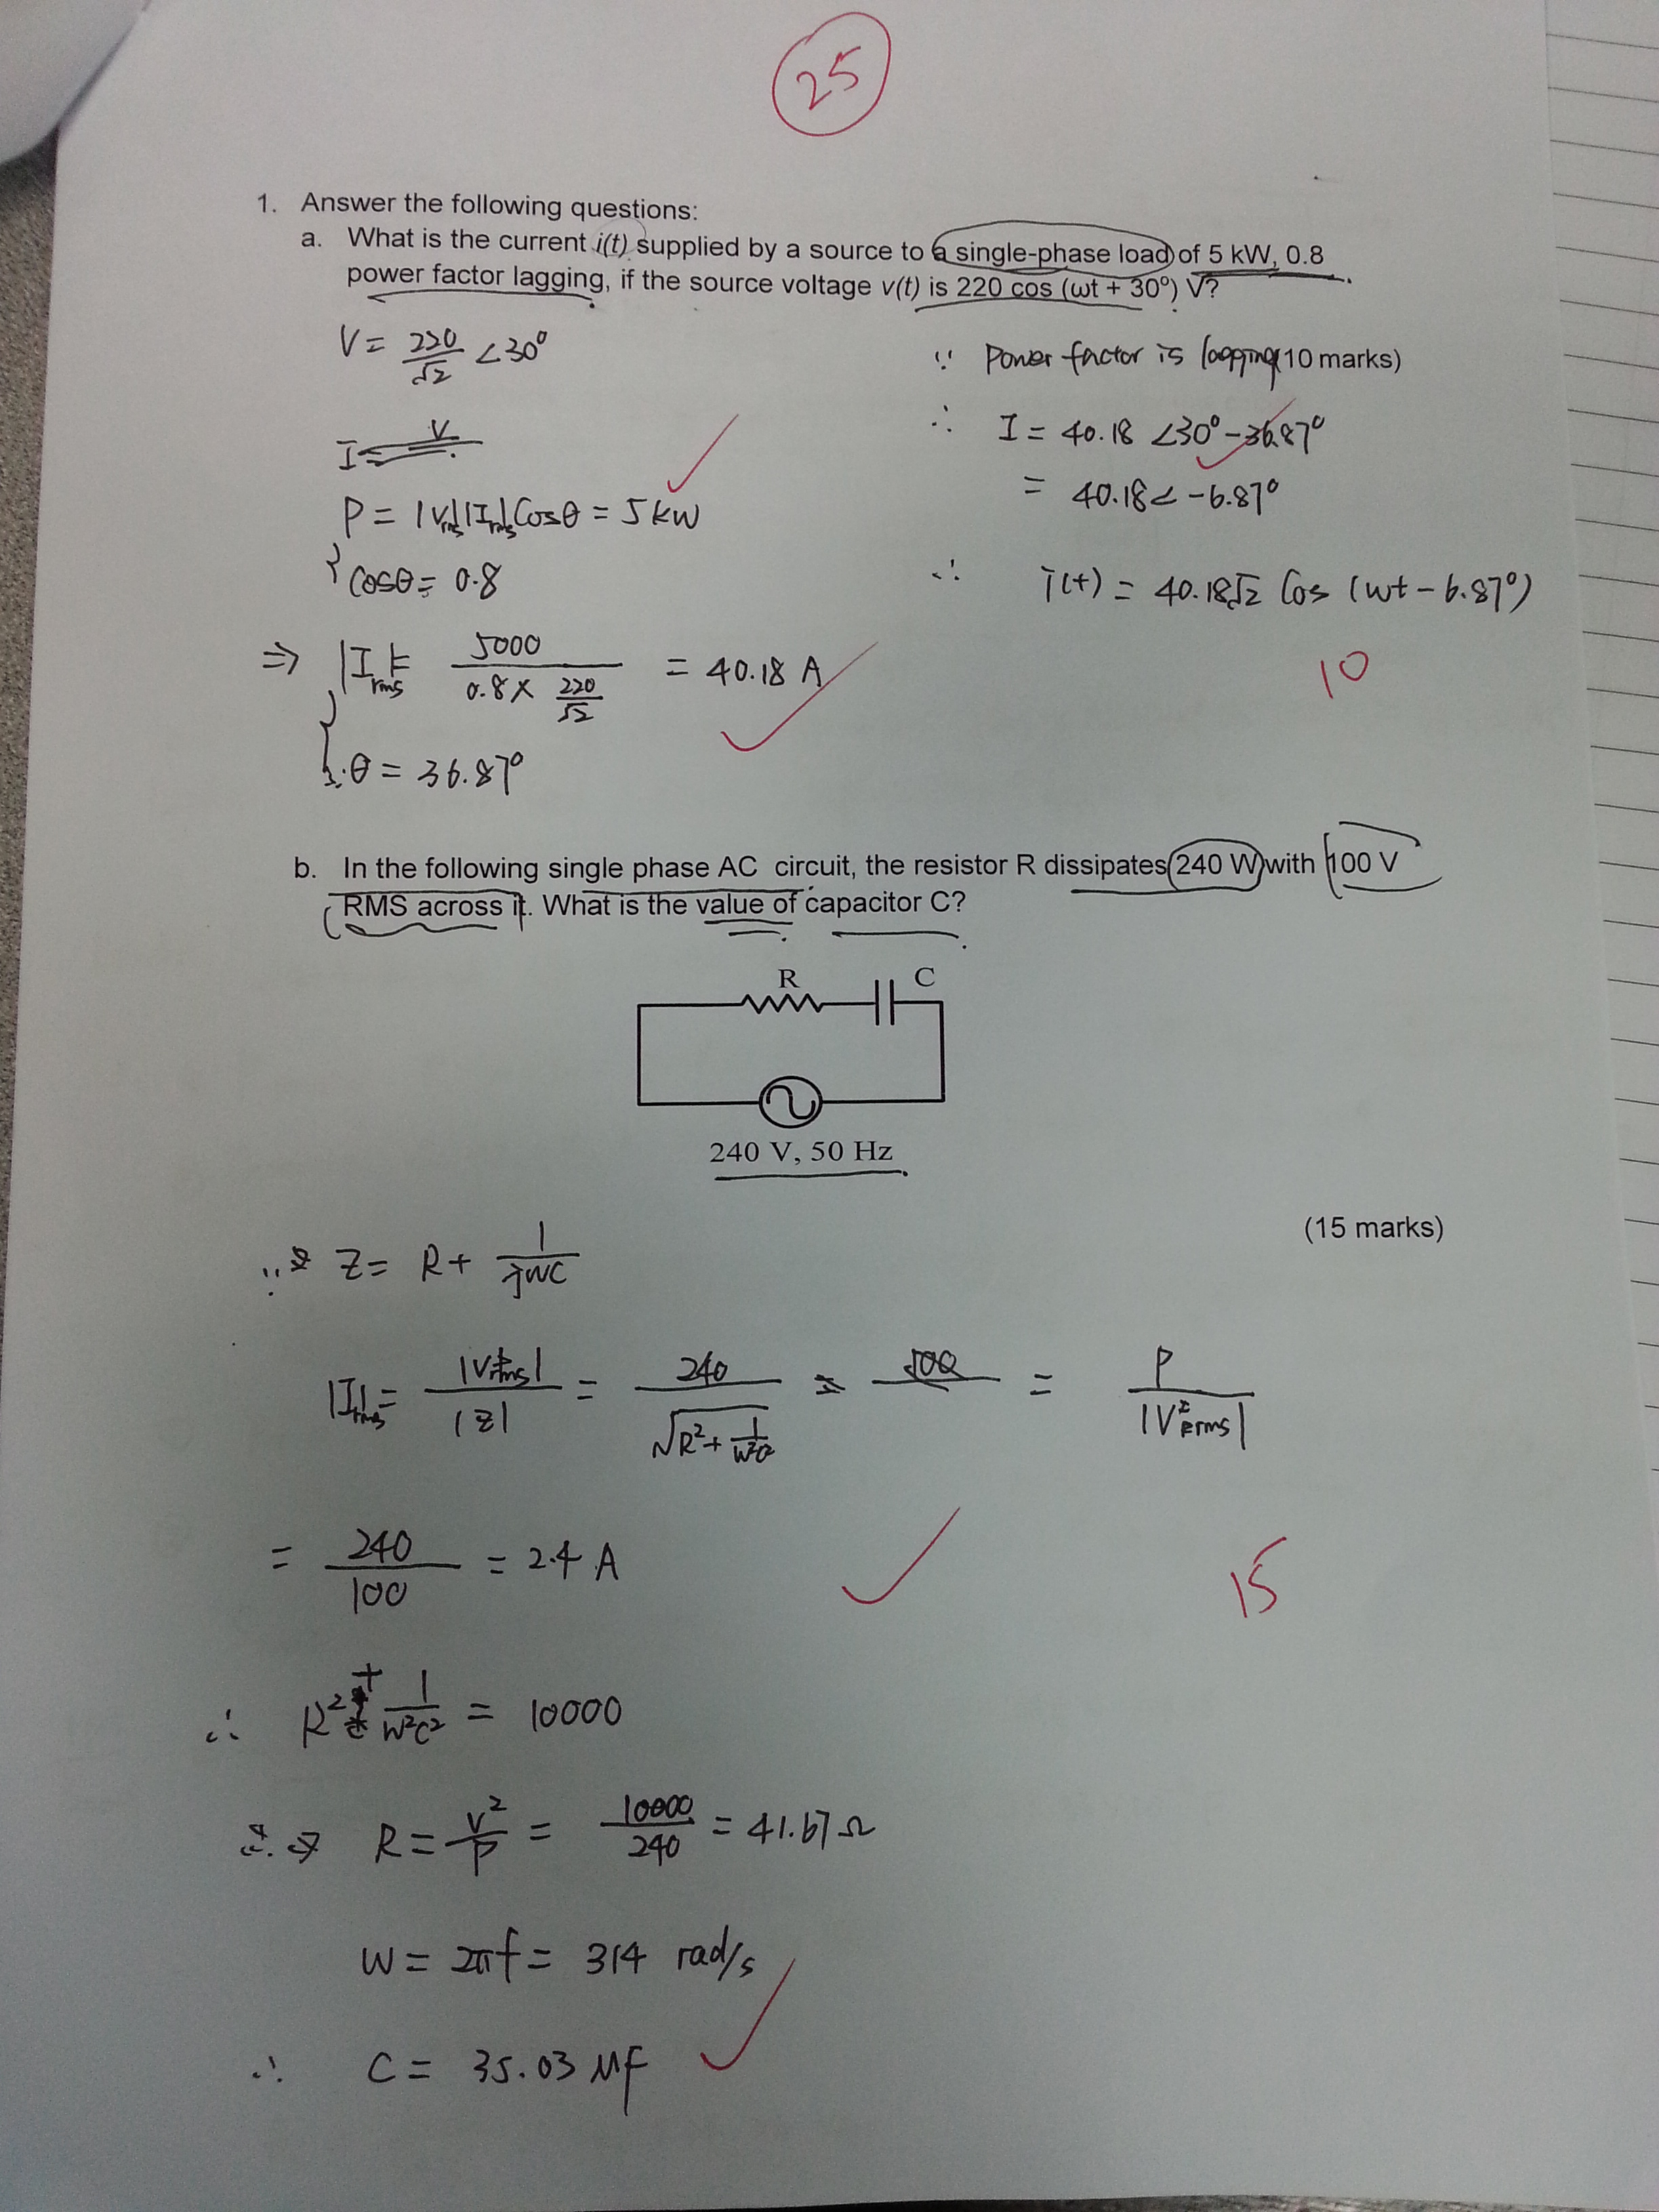 25
1. Answer the following questions:
a. What is the current i(t) supplied by a source to a single-phase load of 5 kW, 0.8
power factor lagging, if the source voltage v(t) is 220 cos (ωt + 30º) V?
V = 220/√2 ∠30°
I = V
P = |Vrms||Irms| Cosθ = 5 kW
Cosθ = 0.8
⇒ |Irms| = 5000 / (0.8 × 220/√2) = 40.18 A
∴ θ = 36.87°
∵ Power factor is lagging (10 marks)
∴ I = 40.18 ∠30° - 36.87°
= 40.18 ∠ -6.87°
∴ i(t) = 40.18√2 Cos (wt - 6.87°)
10
b. In the following single phase AC circuit, the resistor R dissipates 240 W with 100 V
RMS across it. What is the value of capacitor C?
R C
240 V, 50 Hz
(15 marks)
∵ Z = R + 1/jwc
|Irms| = |Vrms| / |Z| = 240 / √(R² + 1/w²c²) = P / |V²Rrms|
= 240/100 = 2.4 A
15
∴ R² + 1/w²c² = 10000
R = V²/P = 10000/240 = 41.67 Ω
w = 2πf = 314 rad/s
∴ C = 35.03 μF